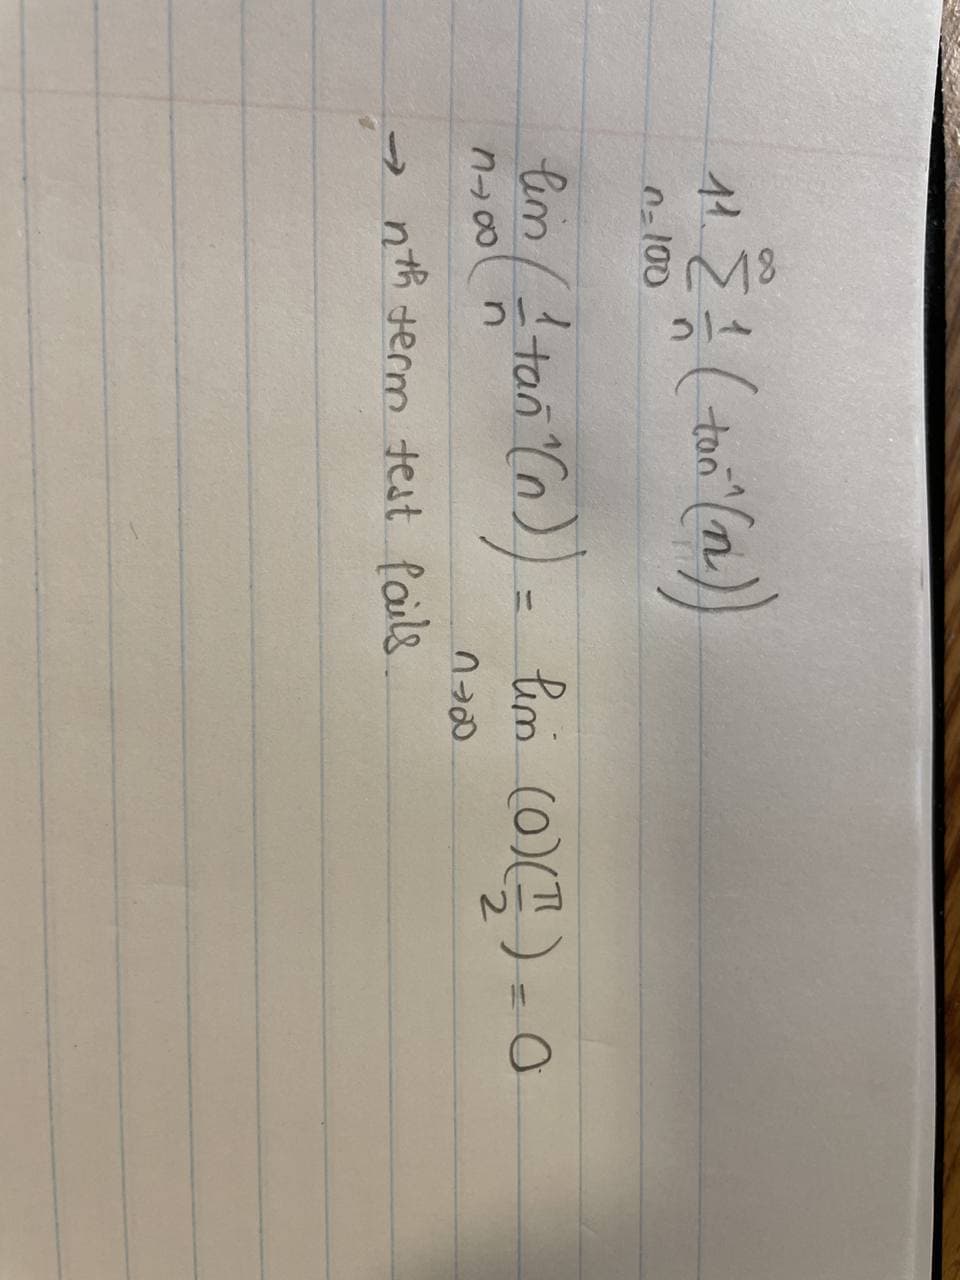 11. ∞∑n=100 1/n (tan⁻¹(n))
lim n→∞ (1/n tan⁻¹(n)) = lim n→∞ (0)(π/2) = 0.
→ nᵗʰ term test fails.